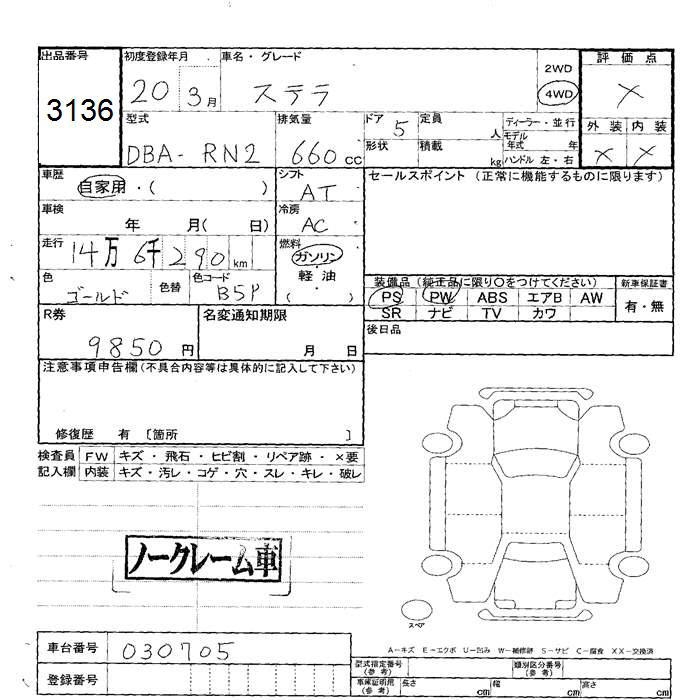 出品番号 初度登録年月 車名・グレード 評価点
3136 20 3月 ステラ 2WD 4WD X
外装 内装
X X
型式 排気量 ドア 定員 ディーラー・並行
DBA- RN2 660cc 5 人 モデル年式 年
形状 積載 kg ハンドル 左・右
車歴 シフト セールスポイント (正常に機能するものに限ります)
自家用・( ) AT
車検 冷房
年 月( 日) AC
走行 燃料
14万 6千 290 km ガソリン・軽油
( )
色 色替 色コード
ゴールド B5P
装備品 (純正品に限り○をつけてください) 新車保証書
PS PW ABS エアB AW 有・無
SR ナビ TV カワ
R券 名変通知期限 後日品
9850円 月 日
注意事項申告欄(不具合内容等は具体的に記入して下さい)
修復歴 有 [箇所 ]
検査員 FW キズ・飛石・ヒビ割・リペア跡・×要
記入欄 内装 キズ・汚レ・コゲ・穴・スレ・キレ・破レ
ノークレーム車
スペア
A-キズ E-エクボ U-凹み W-補修跡 S-サビ C-腐食 XX-交換済
車台番号 030705
登録番号
型式指定番号(参考) 類別区分番号(参考)
車庫証明用(参考) 長さ cm 幅 cm 高さ cm